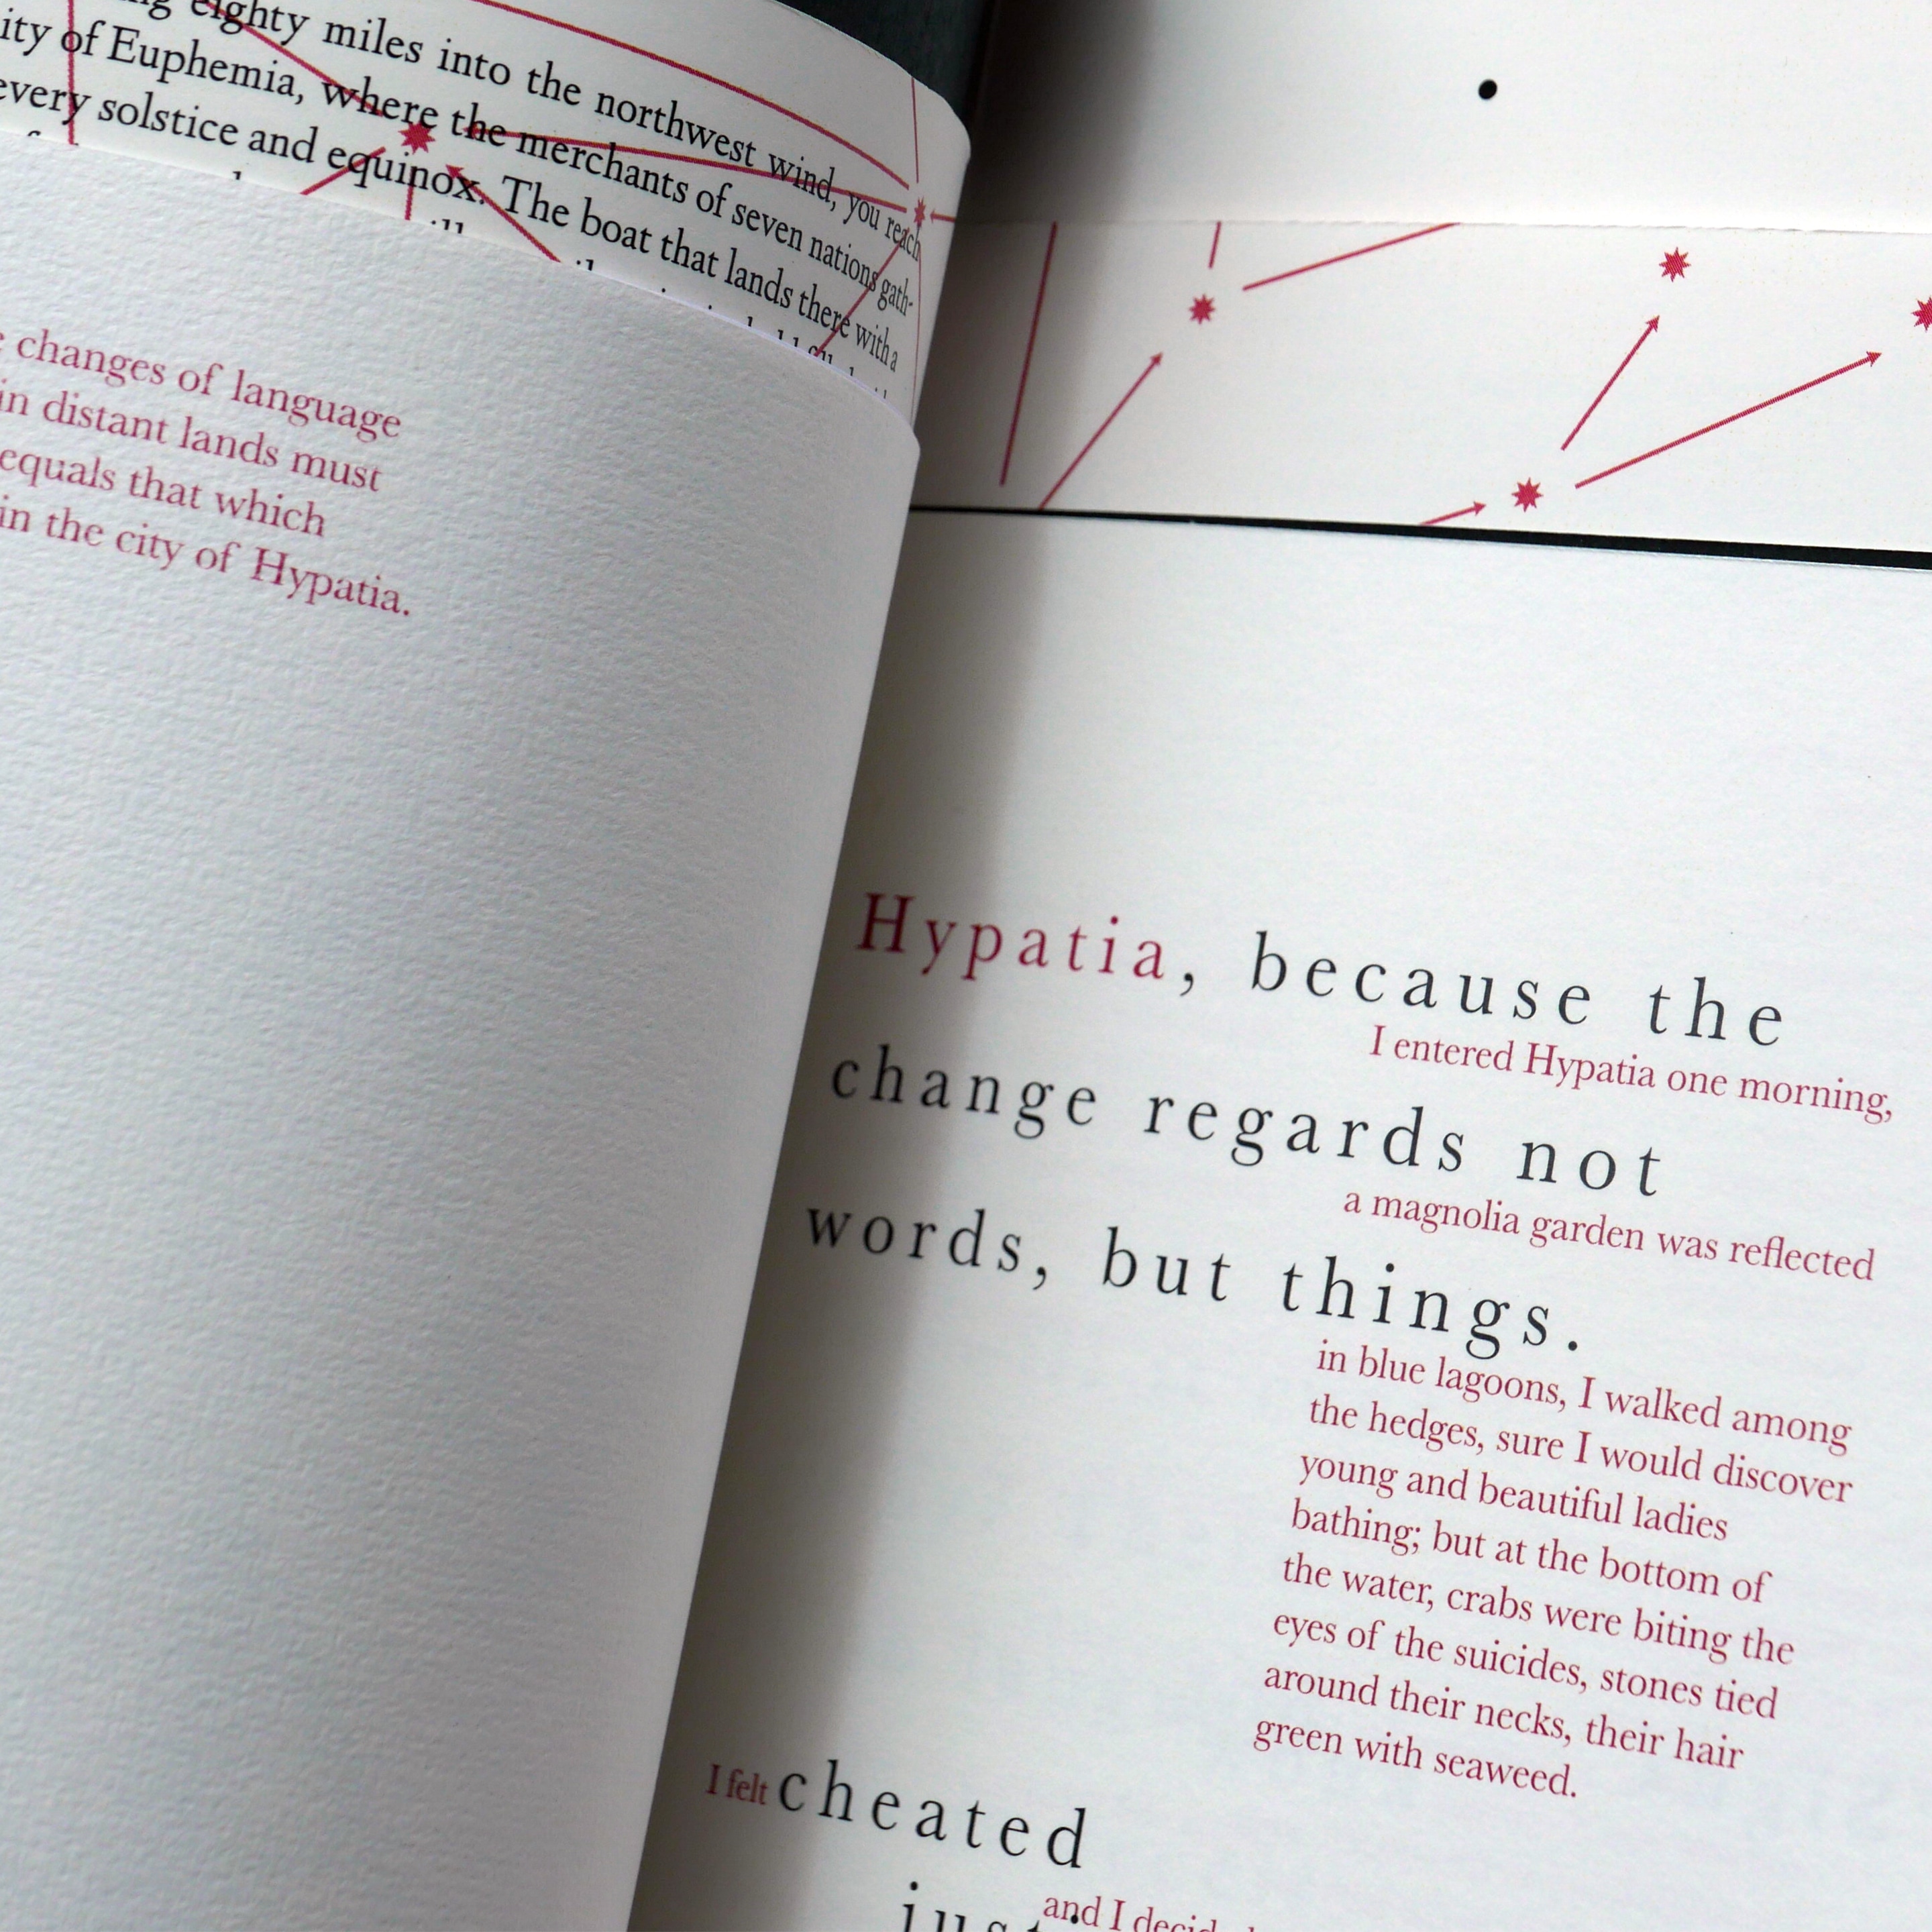 eighty miles into the northwest wind, you reach
of Euphemia, where the merchants of seven nations gath-
every solstice and equinox. The boat that lands there with a
changes of language
in distant lands must
equals that which
in the city of Hypatia.
Hypatia, because the
I entered Hypatia one morning,
change regards not
a magnolia garden was reflected
words, but things.
in blue lagoons, I walked among
the hedges, sure I would discover
young and beautiful ladies
bathing; but at the bottom of
the water, crabs were biting the
eyes of the suicides, stones tied
around their necks, their hair
green with seaweed.
I felt cheated
and I